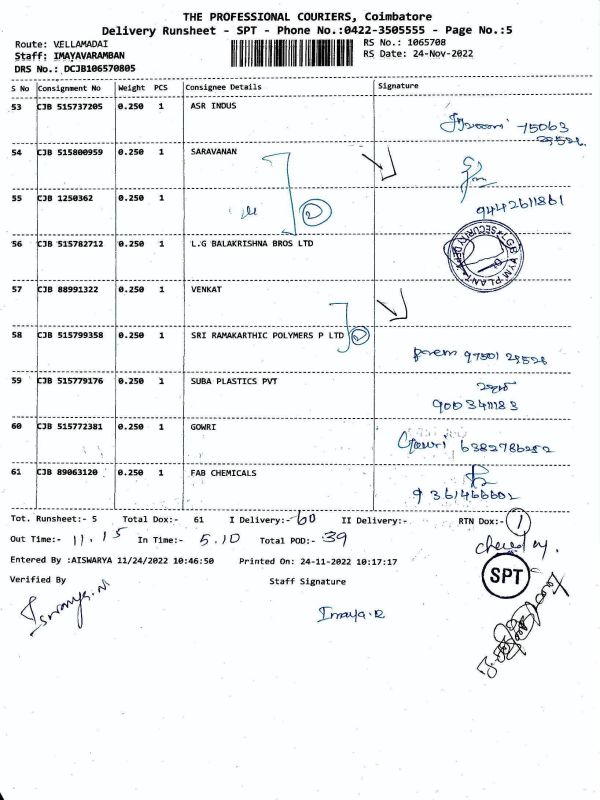 THE PROFESSIONAL COURIERS, Coimbatore
Delivery Runsheet - SPT - Phone No.:0422-3505555 - Page No.:5
Route: VELLAMADAI RS No.: 1065708
Staff: IMAYAVARAMBAN RS Date: 24-Nov-2022
DRS No.: DCJB106570805
S No Consignment No Weight PCS Consignee Details Signature
53 CJB 515737205 0.250 1 ASR INDUS
75063
54 CJB 515800959 0.250 1 SARAVANAN
55 CJB 1250362 0.250 1 2 9442611861
56 CJB 515782712 0.250 1 L.G BALAKRISHNA BROS LTD
57 CJB 88991322 0.250 1 VENKAT
58 CJB 515799358 0.250 1 SRI RAMAKARTHIC POLYMERS P LTD 2
59 CJB 515779176 0.250 1 SUBA PLASTICS PVT
9003411183
60 CJB 515772381 0.250 1 GOWRI Gowri 6382786252
61 CJB 89063120 0.250 1 FAB CHEMICALS
9361466602
Tot. Runsheet:- 5 Total Dox:- 61 I Delivery:- 60 II Delivery:- RTN Dox:- 1
Out Time:- 11.15 In Time:- 5.10 Total POD:- 39
Entered By :AISWARYA 11/24/2022 10:46:50 Printed On: 24-11-2022 10:17:17
SPT
Verified By Staff Signature
Imaya.R